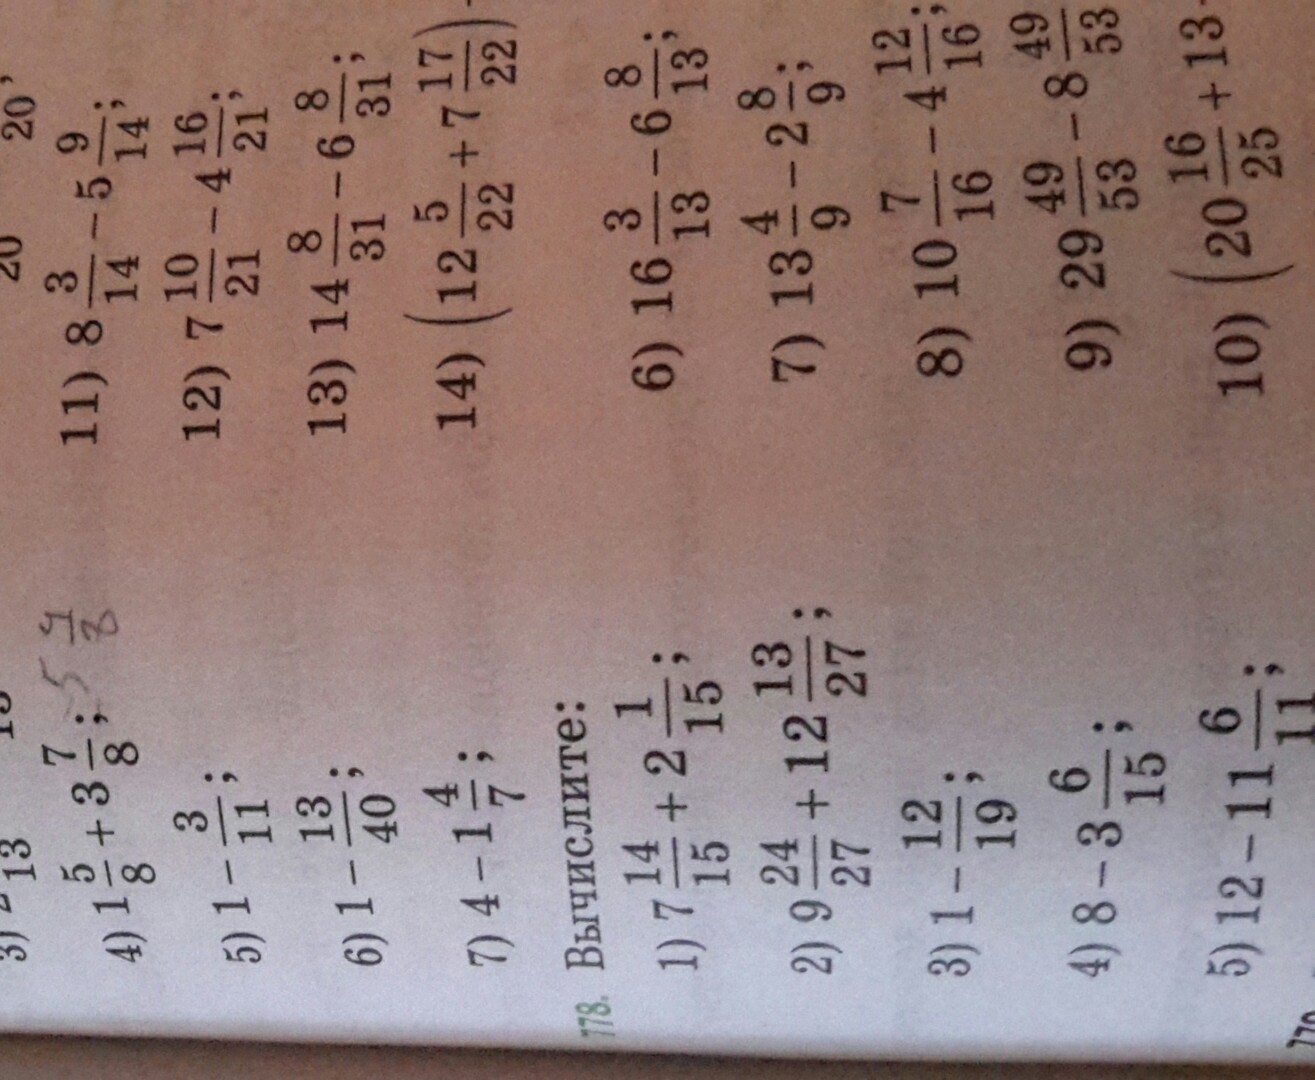 3)
13
4) 1 5/8 + 3 7/8; 5 4/8
5) 1 − 3/11;
6) 1 − 13/40;
7) 4 − 1 4/7;
20 20,
11) 8 3/14 − 5 9/14;
12) 7 10/21 − 4 16/21;
13) 14 8/31 − 6 8/31;
14) (12 5/22 + 7 17/22)
778. Вычислите:
1) 7 14/15 + 2 1/15;
2) 9 24/27 + 12 13/27;
3) 1 − 12/19;
4) 8 − 3 6/15;
5) 12 − 11 6/11;
6) 16 3/13 − 6 8/13;
7) 13 4/9 − 2 8/9;
8) 10 7/16 − 4 12/16;
9) 29 49/53 − 8 49/53
10) (20 16/25 + 13